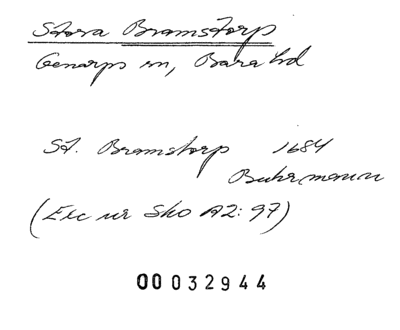 Stora Bramstorp
Genarps sn, Bara hd
St. Bramstorp 1684
Buhrmann
(Exc ur Sko A2: 97)
00032944